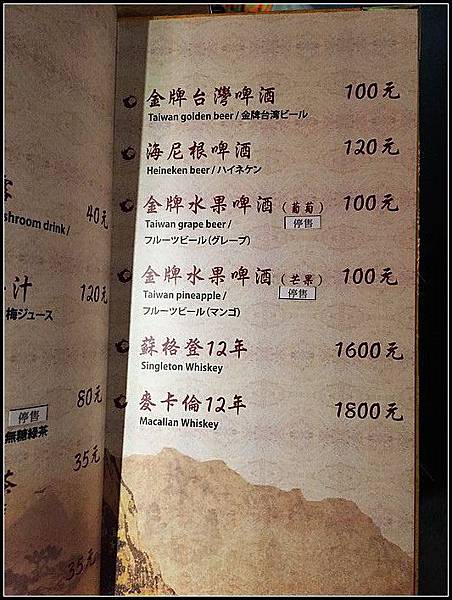 shroom drink /
40元
汁
120元
梅ジュース
80元
停售
無糖綠茶
35元
茶
35元
金牌台灣啤酒 100元
Taiwan golden beer / 金牌台湾ビール
海尼根啤酒 120元
Heineken beer / ハイネケン
金牌水果啤酒(葡萄) 100元
Taiwan grape beer / 停售
フルーツビール(グレープ)
金牌水果啤酒(芒果) 100元
Taiwan pineapple / 停售
フルーツビール(マンゴ)
蘇格登12年 1600元
Singleton Whiskey
麥卡倫12年 1800元
Macallan Whiskey